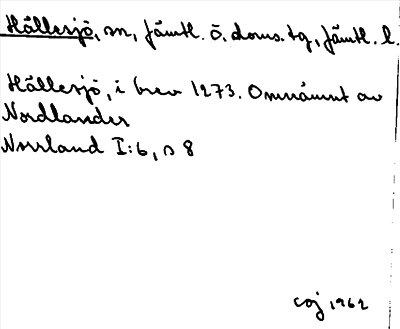 Hällesjö, sn, Jämtl. ö. doms. tg, Jämtl. l.
Hällesjö, i brev 1273. Omnämnt av
Nordlander
Norrland I:6, s 8
coj 1962